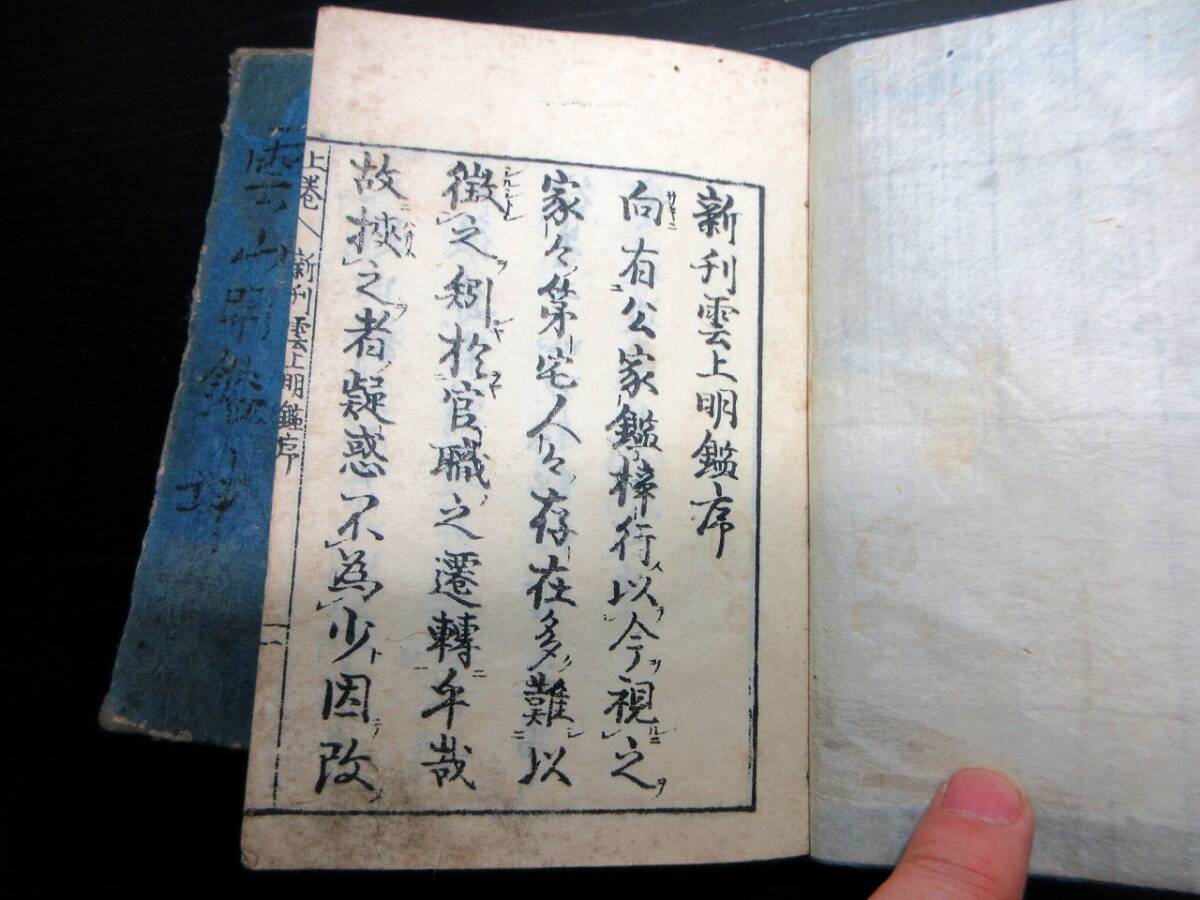 新刊雲上明鑑序
向有公家鑑梓行以今視之
家々第宅人々存在多難以
徴之矧於官職之遷轉乎哉
故挾之者疑惑不為少因改
上巻 新刊雲上明鑑序 一
雲上明鑑 上